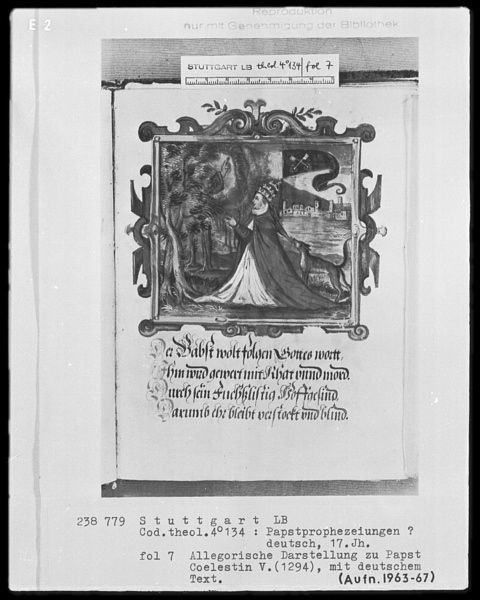 E 2
Reproduktion
nur mit Genehmigung der Bibliothek
STUTTGART LB theol. 4° 134 / fol 7
Der Babst wolt folgen Gottes wortt,
Ihm wird gewert mit Rhat vnnd mord.
Durch sein Fuchßlistig Hoffgesind,
Darumb ehr bleibt verstockt vnd blind.
238 779 Stuttgart LB
Cod.theol.4°134 : Papstprophezeiungen ?
deutsch, 17.Jh.
fol 7 Allegorische Darstellung zu Papst
Coelestin V.(1294), mit deutschem
Text. (Aufn.1963-67)